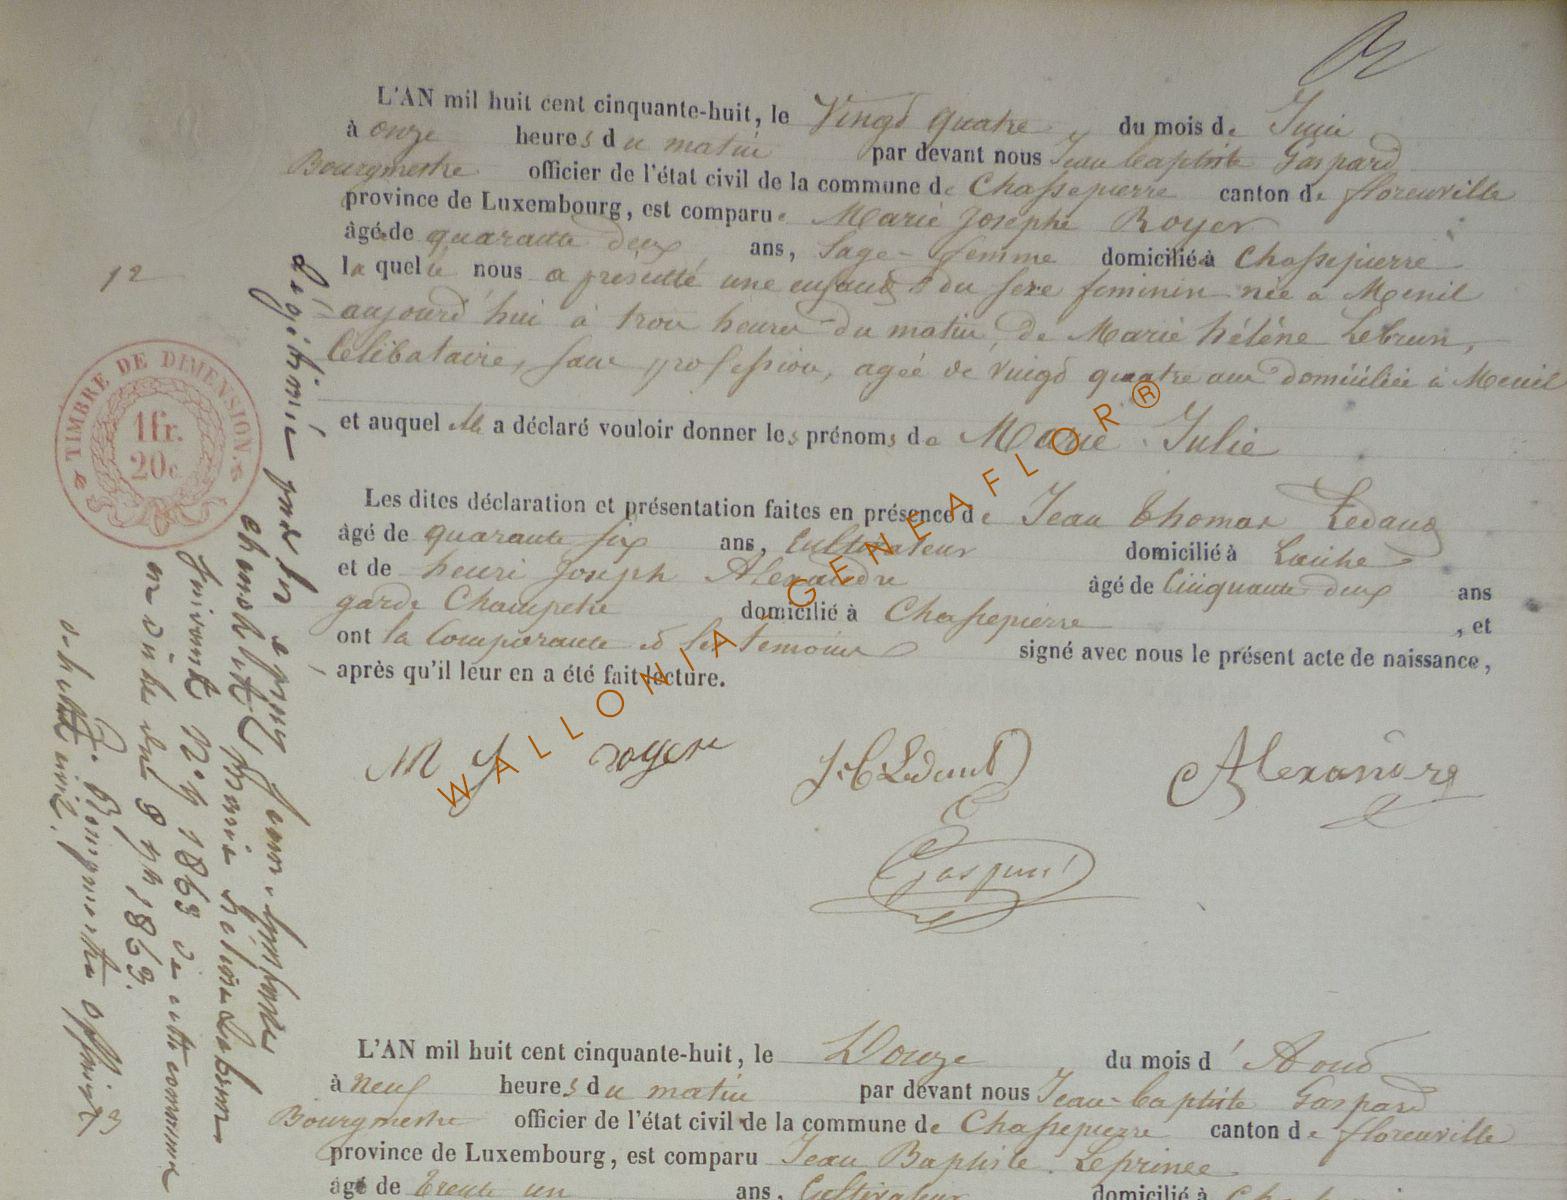 L'AN mil huit cent cinquante-huit, le Vingt quatre du mois de Juin
à onze heures du matin par devant nous Jean baptiste Gaspard
Bourgmestre officier de l'état civil de la commune de Chassepierre canton de florenville
province de Luxembourg, est comparue Marie Josephe Royer
âgée de quarante deux ans, Sage-femme domiciliée à Chassepierre
laquelle nous a présenté une enfant du sexe feminin née à Menil
aujourd'hui à trois heures du matin, de Marie hélène Lebrun,
Célibataire, sans profession, agée de vingt quatre ans domiciliée à Menil
et auquel elle a déclaré vouloir donner les prénoms de Marie Julie
Les dites déclaration et présentation faites en présence de Jean thomas Ledant
âgé de quarante six ans, Cultivateur domicilié à Laiche
et de henri Joseph Alexandre âgé de Cinquante deux ans
garde Champetre domicilié à Chassepierre , et
ont la Comparante et les temoins signé avec nous le présent acte de naissance,
après qu'il leur en a été fait lecture.
M J royer J.t Ledant Alexandre
Gaspard
12
TIMBRE DE DIMENSION.
1 fr.
20 c
Légitimé par
Marie hélène Lebrun
suivant 1863 de cette commune
en date du 1863.
Bourgmestre officier
WALLONIA GENEAFLOR ®
L'AN mil huit cent cinquante-huit, le Douze du mois d'Aout
à neuf heures du matin par devant nous Jean-baptiste Gaspard
Bourgmestre officier de l'état civil de la commune de Chassepierre canton de florenville
province de Luxembourg, est comparu Jean Baptiste Leprince
âgé de trente un ans, Cultivateur domicilié à